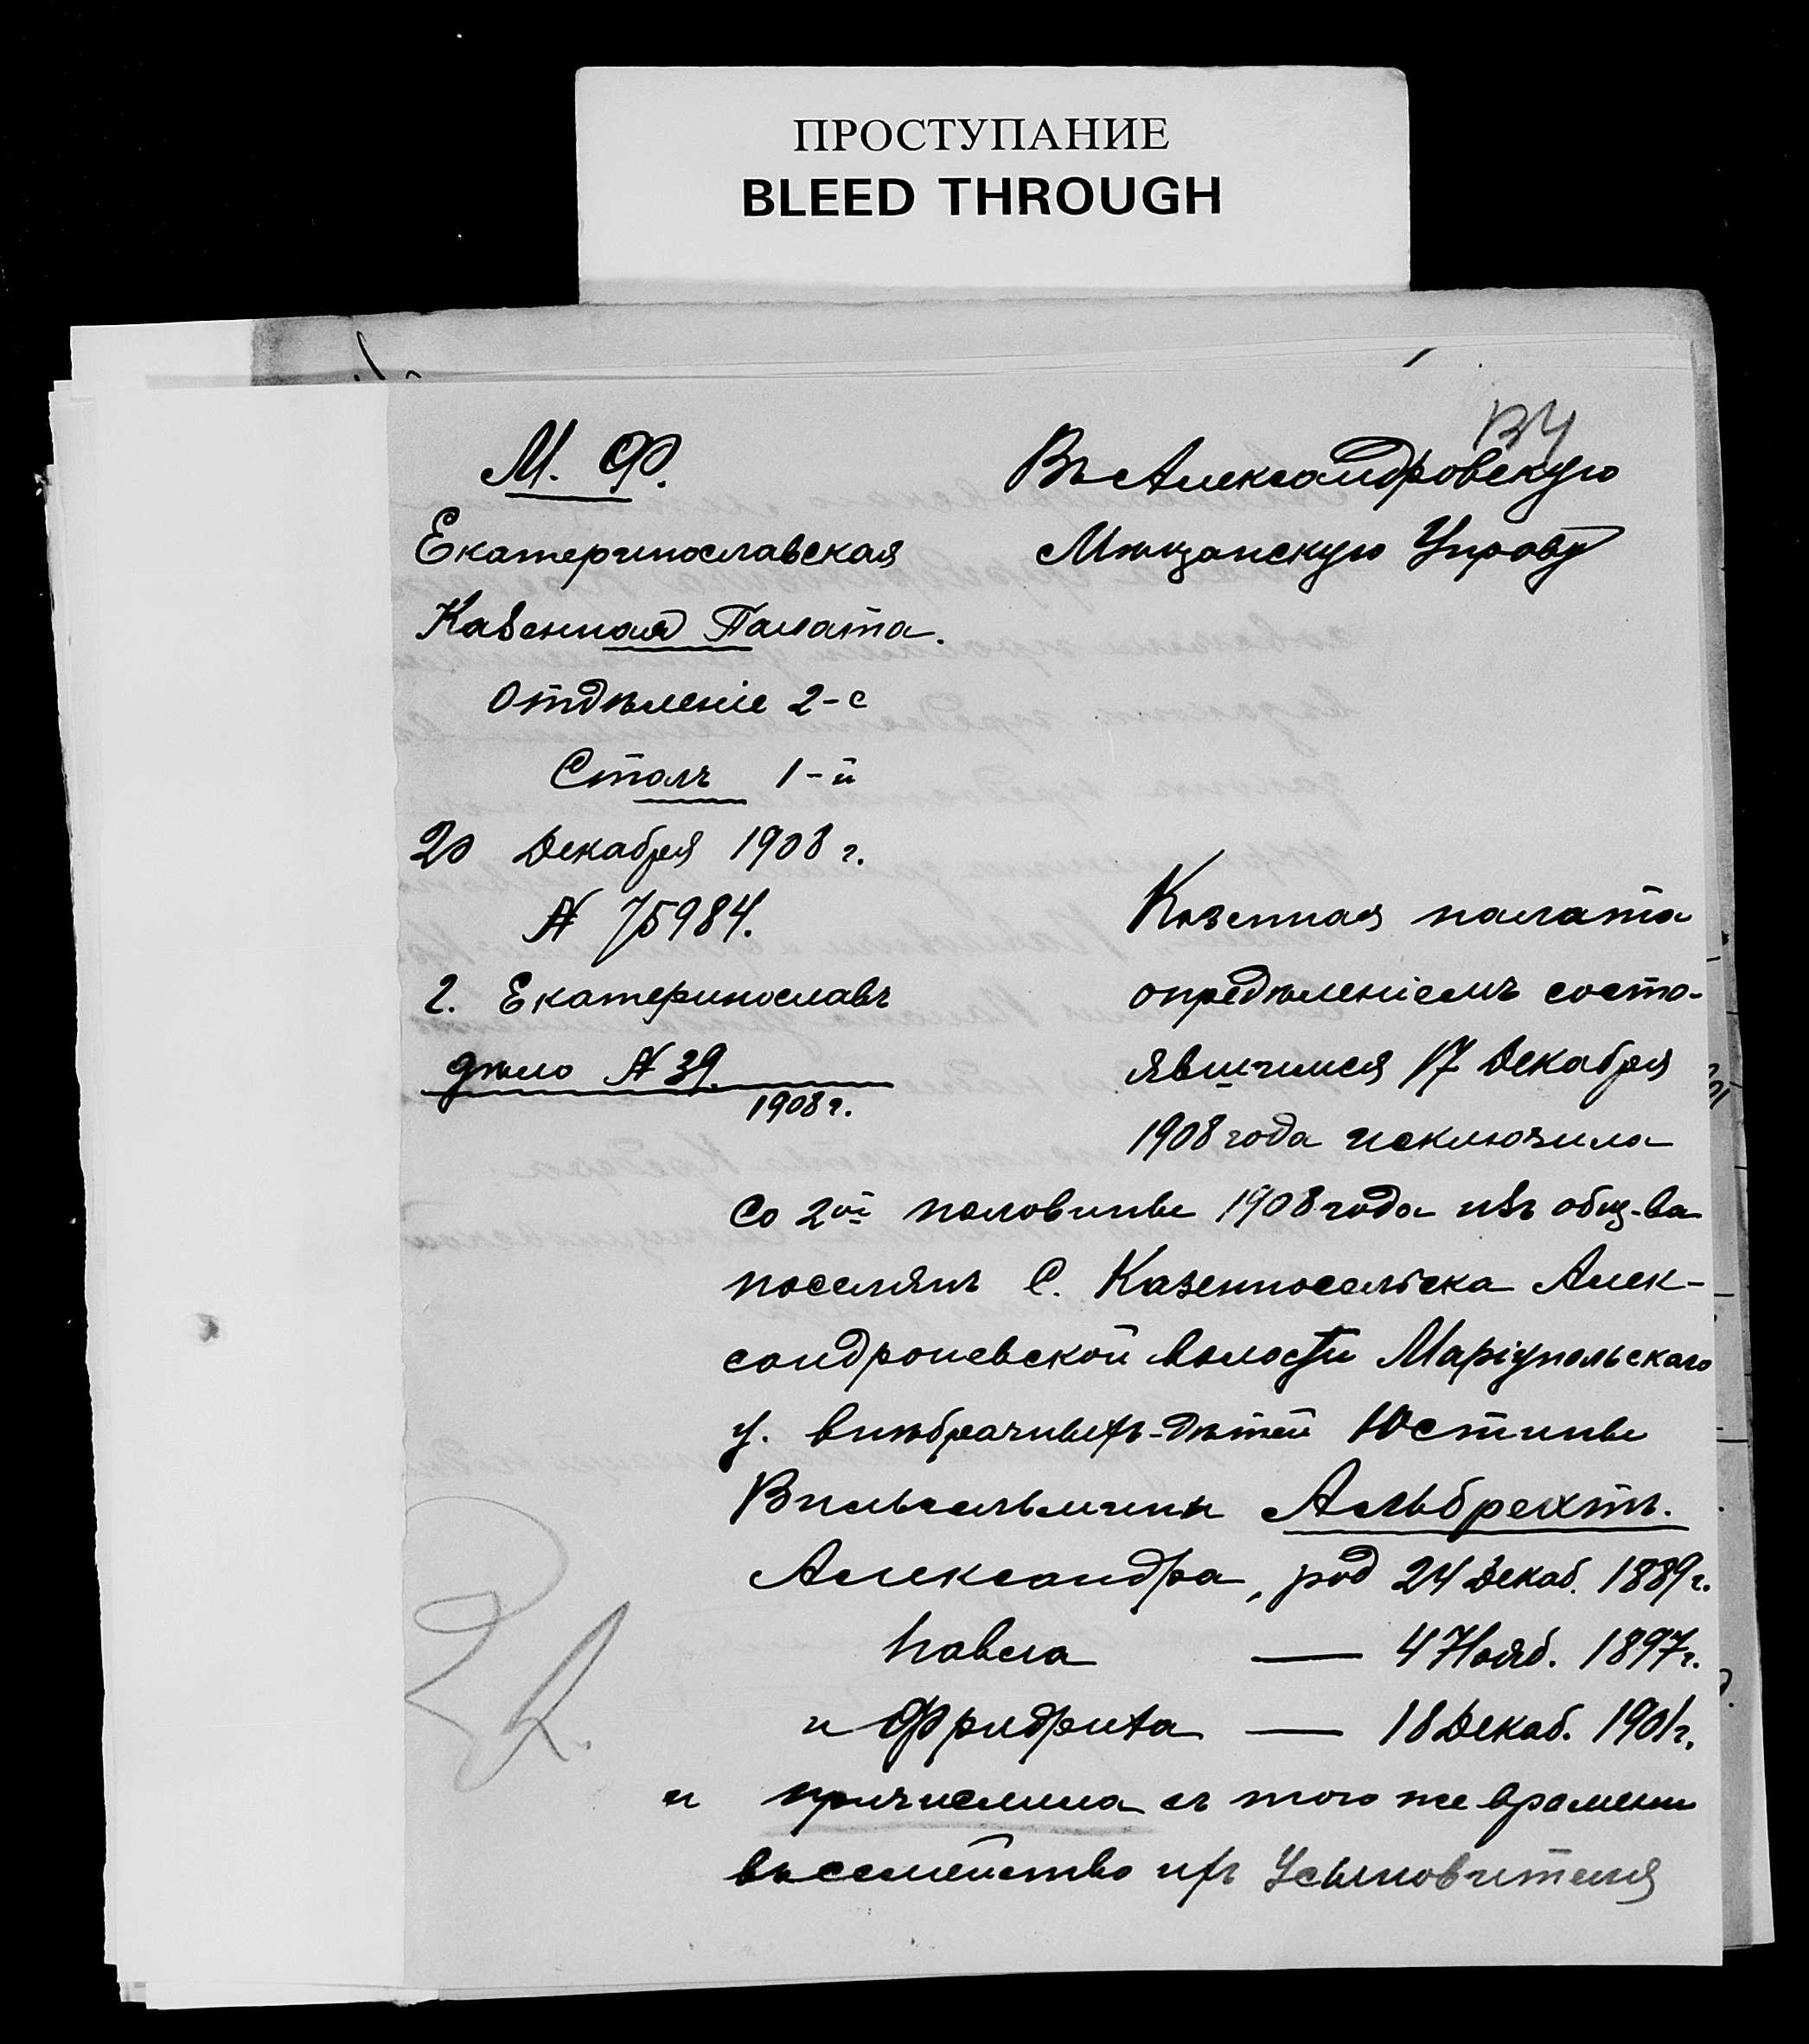 ПРОСТУПАНИЕ
BLEED THROUGH
М. Ф.
Екатеринославская
Казенная Палата.
Отдѣленіе 2-е
Столъ 1-й
20 Декабря 1908 г.
№ 75984.
г. Екатеринославъ
дѣло № 39.
1908 г.
Въ Александровскую
Мѣщанскую Управу
Казенная палата
опредѣленіемъ состо-
явшимся 17 Декабря
1908 года исключила
со 2ой половины 1908 года изъ общ-ва
поселянъ С. Казенносельска Алек-
сандроневской волости Маріупольскаго
у. внѣбрачныхъ дѣтей Юстины
Вильгельмины Альбрехтъ.
Александра, род 24 Декаб. 1889 г.
Павла — 4 Нояб. 1897 г.
и Фридриха — 18 Декаб. 1901 г.
и причислила съ того же времени
въ семейство ихъ Усыновителя